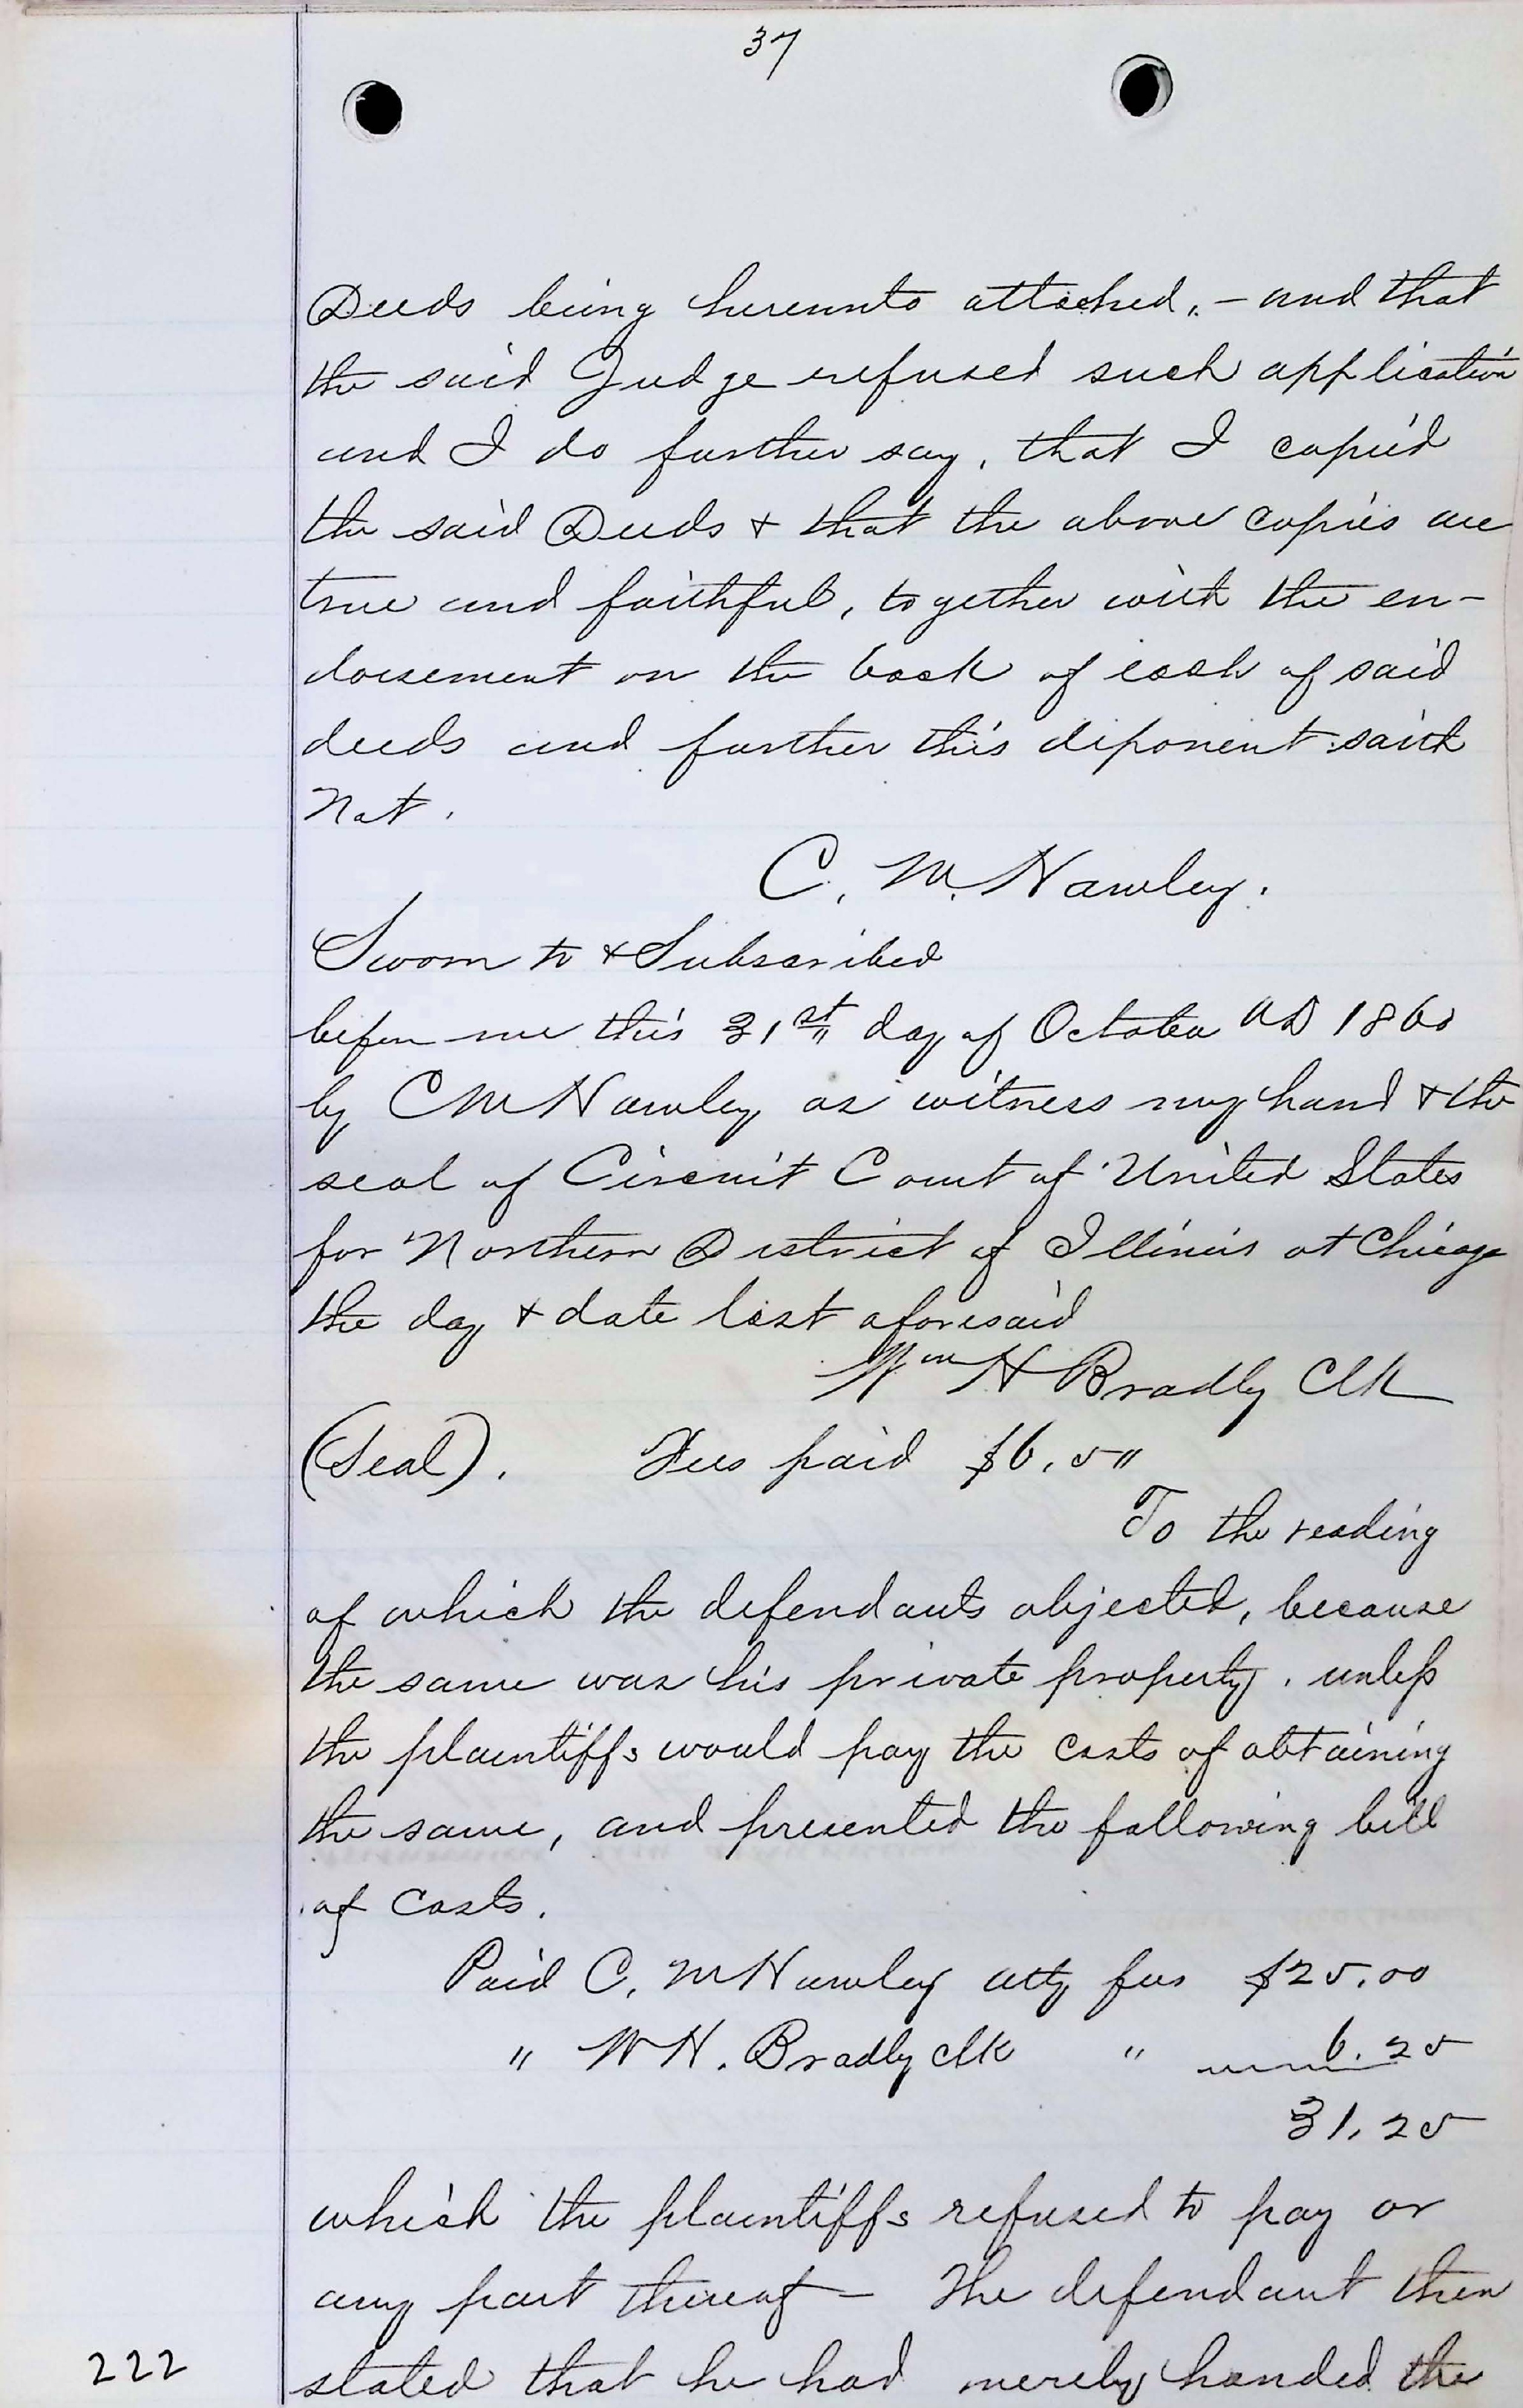 37
Deeds being hereunto attached, - and that
the said Judge refused such application
and I do further say, that I copied
the said Deeds & that the above copies are
true and faithful, together with the en-
dorsement on the back of each of said
deeds and further this deponent saith
Not.
C. M. Hawley.
Sworn to & Subscribed
before me this 31st day of October AD 1860
by C M Hawley as witness my hand & the
seal of Circuit Court of United States
for Northern District of Illinois at Chicago
the day & date last aforesaid
Wm H Bradly Clk
(Seal). Fees paid $6.50
To the reading
of which the defendants objected, because
the same was his private property, unless
the plaintiffs would pay the costs of obtaining
the same, and presented the following bill
of Costs.
Paid C. M Hawley atty fees $25.00
" W H. Bradly clk " 6.25
31.25
which the plaintiffs refused to pay or
any part thereof — The defendant then
222 stated that he had merely handed the